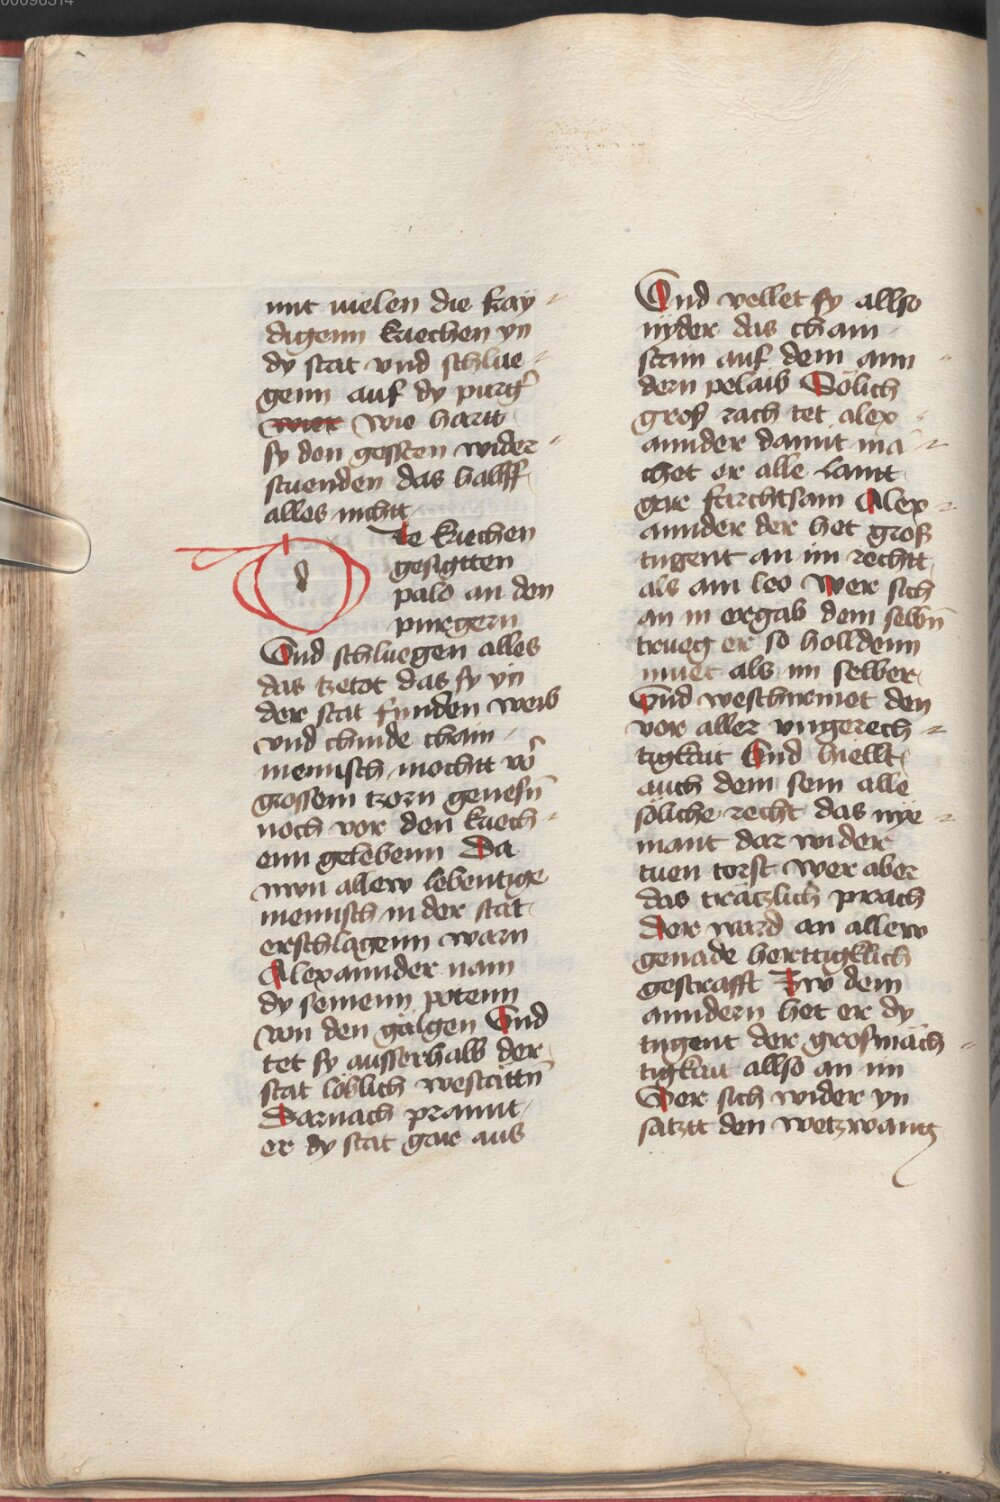 mit uielen die kay-
digenn kriechen yn
dy stat vnd schlue-
genn auf dy purg
wier wie hartt
sy den gessten wider-
stuenden das halff
alles nichtt
De kriechen
gesigtten
pald an den
purgern
Und schluegen alles
das tzetot das sy yn
der stat funden weib
vnd chinde chain
mennisch mochtt vor
grossem tzorn genesn̄
noch vor den kriech-
enn gelebenn Da
nwn allew lebentige
mennisch in der stat
erschlagenn warn
Alexannder nam
dy seinenn potenn
von den galgen Und
tet sy ausserhalb der
stat loblich westattn̄
Darnach prannt
er dy stat gar aus
Und vellet sy allso
nyder das chain
stain auf dem ann-
dern pelaib Solich
gros rach tet alex-
annder damit ma-
chet er alle lannt
gar farchtsam Alex-
annder der het groß
tugent an im rechtt
als ain leo Wer sich
an in ergab dem selbn̄
trueg er so holldenn
muet als im selber
Und weschirmet den
vor aller vngerech-
tigkait Und hiellt
auch dem sein alle
soliche recht das nye-
mant dar wider
tuen torst Wer aber
das trätzlich prach
Der ward an allew
genade herttigklich
gestrafft Zw dem
anndern het er dy
tugent der grosmäch-
tigkait allso an im
Wer sich wider yn
satztt den wetzwang